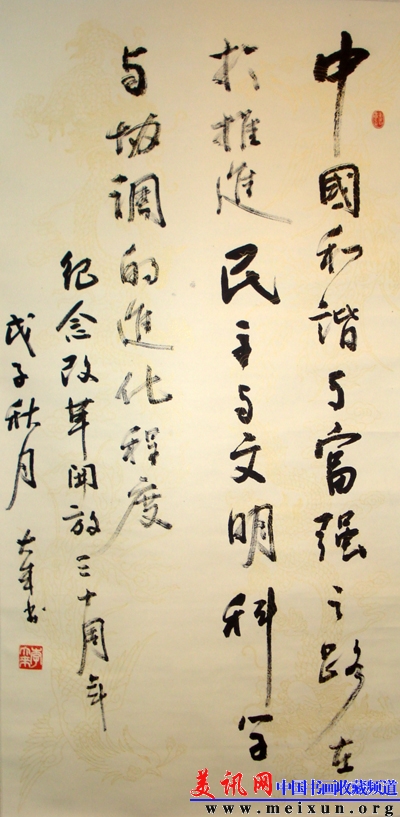 中國和谐与富强之路在
於推進民主与文明科学
与協调的進化程度
纪念改革開放三十周年
戊子秋月
大年书
美讯网
中国书画收藏频道
www.meixun.org